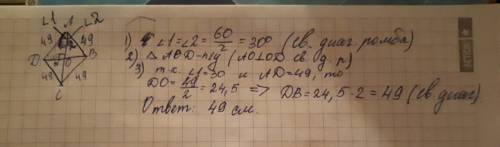 ∠1 A ∠2
49 49
D O B
49 49
C
1) ∠1=∠2=60/2=30° (св. диаг ромба)
2) △ AOD-п/у (AO⊥OD св. д. р)
3) т.к. ∠1=30 и AD=49, то
DO=49/2=24,5 => DB=24,5·2=49 (св. диаг)
Ответ: 49 см.